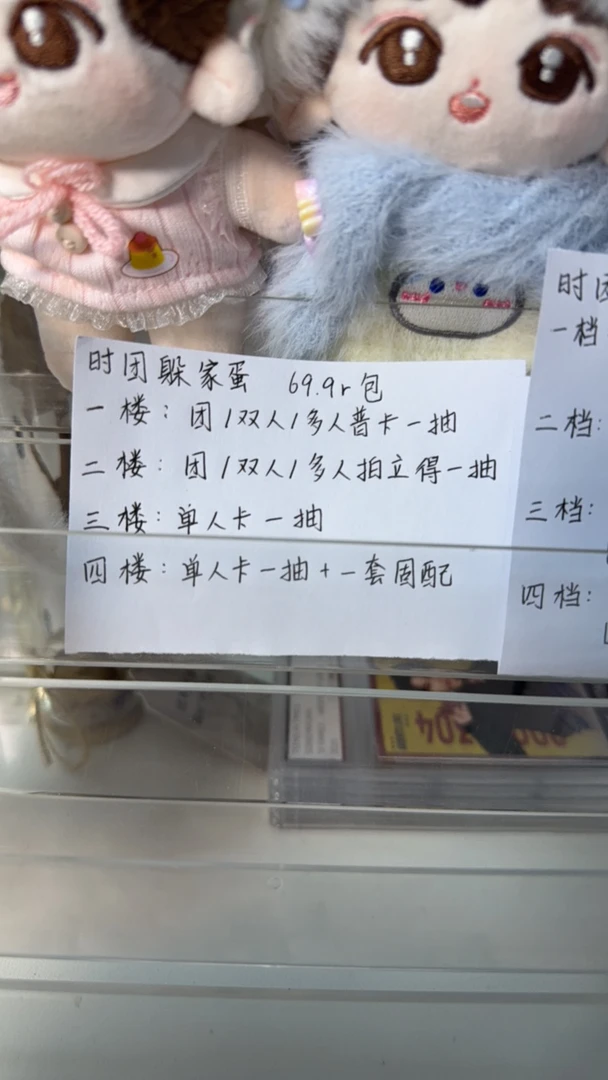 时团躲家蛋 69.9r包
一楼：团/双人/多人普卡一抽
二楼：团/双人/多人拍立得一抽
三楼：单人卡一抽
四楼：单人卡一抽+一套固配
时团
一档
二档：
三档：
四档：